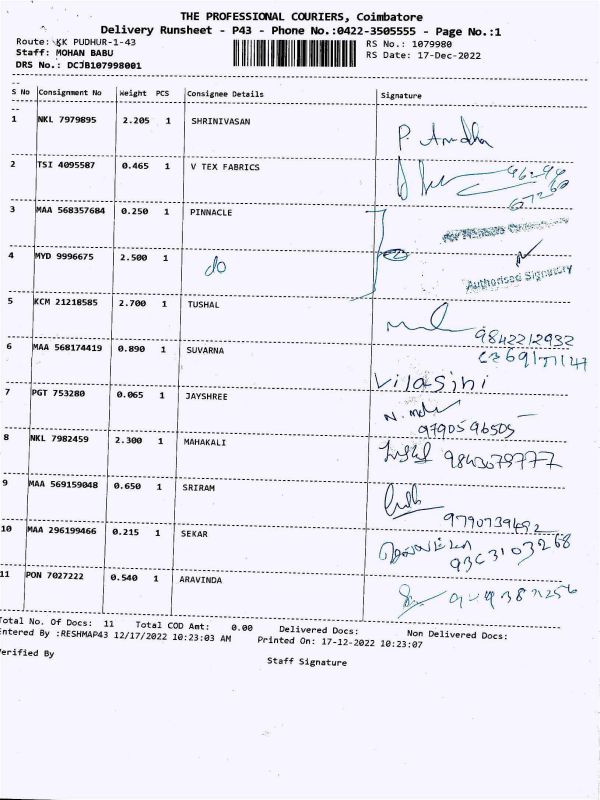 THE PROFESSIONAL COURIERS, Coimbatore
Delivery Runsheet - P43 - Phone No.:0422-3505555 - Page No.:1
Route: KK PUDHUR-1-43 RS No.: 1079980
Staff: MOHAN BABU RS Date: 17-Dec-2022
DRS No.: DCJB107998001
S No Consignment No Weight PCS Consignee Details Signature
1 NKL 7979895 2.205 1 SHRINIVASAN
2 TSI 4095587 0.465 1 V TEX FABRICS
3 MAA 568357684 0.250 1 PINNACLE
4 MYD 9996675 2.500 1 do
Authorised Signatory
5 KCM 21218585 2.700 1 TUSHAL
9842212932
6 MAA 568174419 0.890 1 SUVARNA
Vilasini
7 PGT 753280 0.065 1 JAYSHREE
9790596505
8 NKL 7982459 2.300 1 MAHAKALI 9843079777
9 MAA 569159048 0.650 1 SRIRAM
9790739692
10 MAA 296199466 0.215 1 SEKAR
9363103268
11 PON 7027222 0.540 1 ARAVINDA
Total No. Of Docs: 11 Total COD Amt: 0.00 Delivered Docs: Non Delivered Docs:
Entered By :RESHMAP43 12/17/2022 10:23:03 AM Printed On: 17-12-2022 10:23:07
Verified By Staff Signature